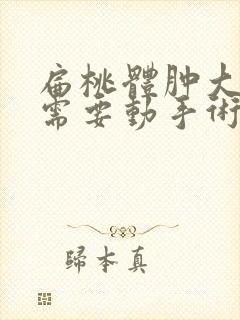 扁桃體肿大
需要動手術
歸本真